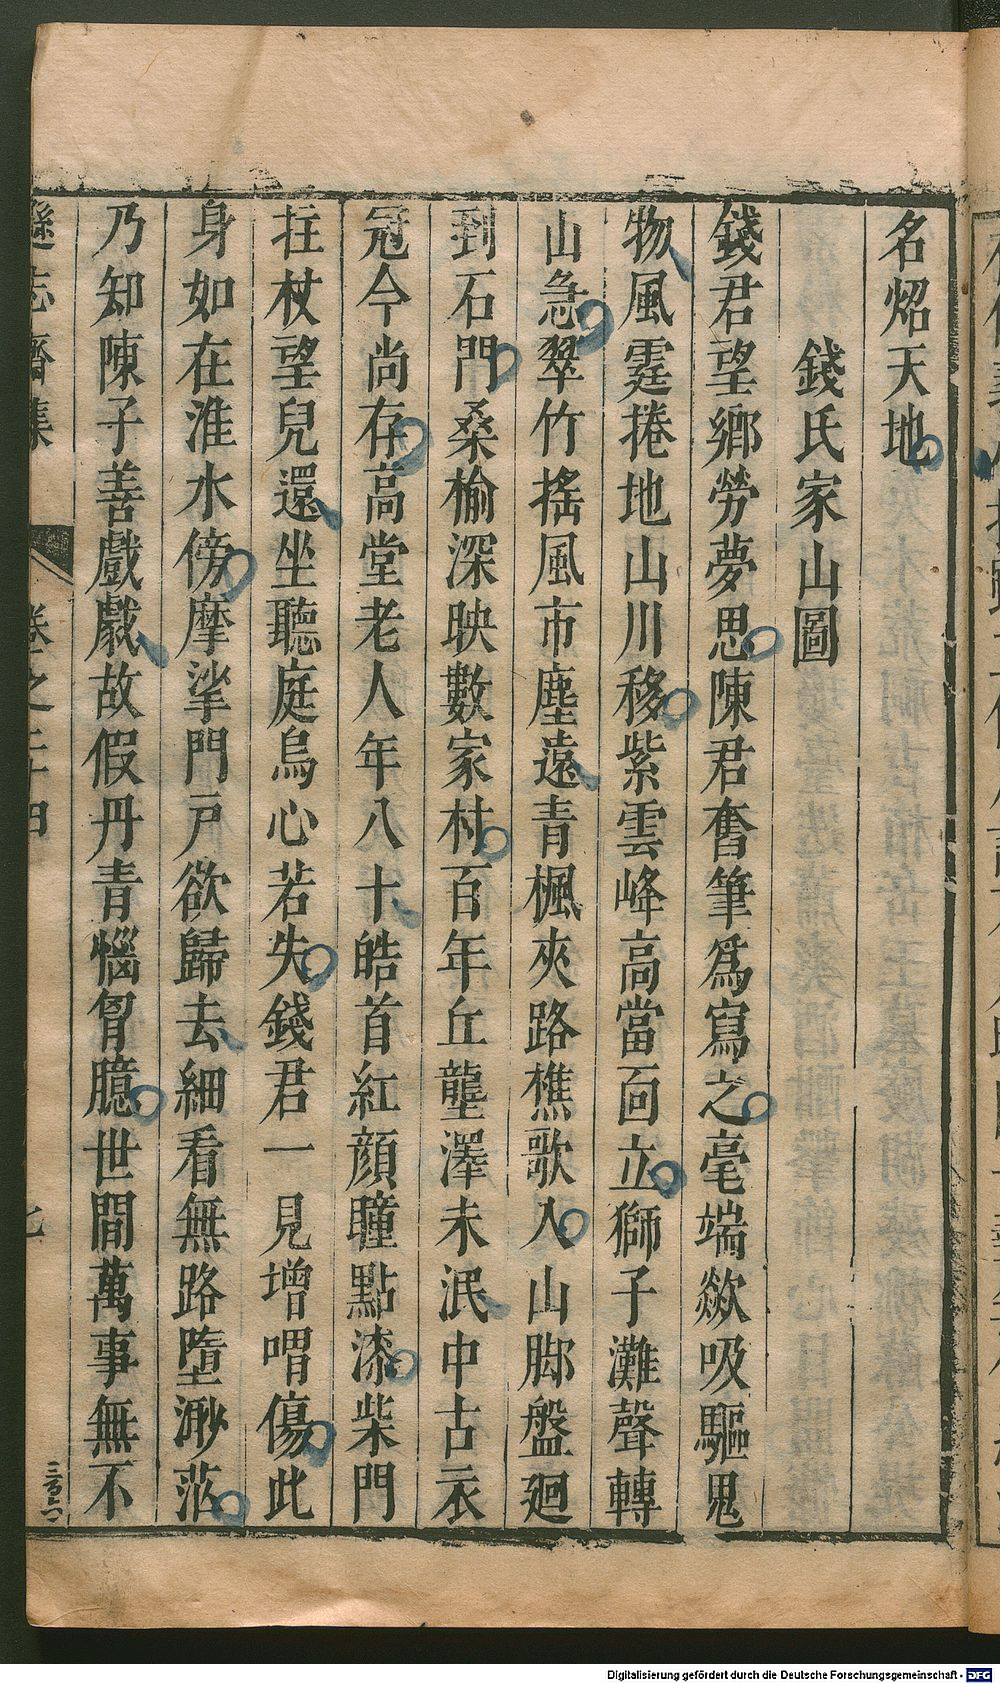 名炤天地
錢氏家山圖
錢君望鄉勞夢思陳君奮筆爲寫之毫端歘吸驅鬼
物風霆捲地山川移紫雲峰高當面立獅子灘聲轉
山急翠竹搖風市塵遠青楓夾路樵歌入山脚盤廻
到石門桑榆深映數家村百年丘壟澤未泯中古衣
冠今尚存高堂老人年八十皓首紅顔瞳點漆柴門
拄杖望兒還坐聽庭烏心若失錢君一見增喟傷此
身如在淮水傍摩挲門戸欲歸去細看無路墮渺茫
乃知陳子善戲劇故假丹青惱胷臆世間萬事無不
遜志齋集 卷之二十四
Digitalisierung gefördert durch die Deutsche Forschungsgemeinschaft - DFG